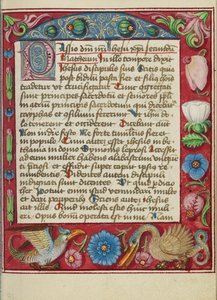 Passio dñi nr̄i Jhesu xp̄i secundū
Mattheum In illo tempore dixit
Jhesus discipulis suis Scitis quia
post biduū pasca fiet et filius hoīs
tradetur ut crucifigatur Tunc congregati
sunt principes sacerdotū et seniores ppłi
in atrium principis sacerdotum qui dicebat̄
cayphas et consilium fecerunt Ut ihm̄
dolo tenerent et occiderent Dicebant aūt
Non in die festo Ne forte tumultus fieret
in populo Cum autem esset ihesus in be
thania in domo Symonis leprosi Accessit
ad eum mulier habens alabastrum ungue̅
ti preciosi et effudit super caput ipsius re
cumbentis Videntes autem discipuli
indignati sunt dicentes Ut quid perdi
cio hec Potuit enim istud venundari m̄lto
et dari pauperibus Sciens aūt ihesus
ait illis Quid molesti estis huic muli
eri Opus bonum operata est in me Nam